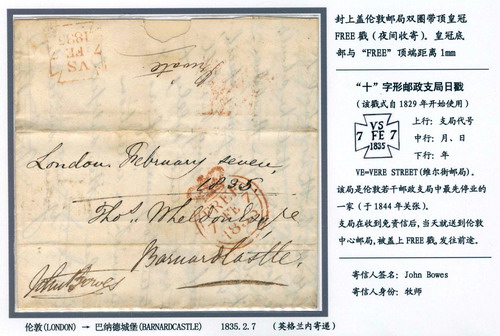 封上盖伦敦邮局双圈带顶皇冠
FREE 戳（夜间收寄）。皇冠底
部与“FREE”顶端距离1mm
“十”字形邮政支局日戳
（该戳式自1829年开始使用）
VS
7 FE 7
1835
上行：支局代号
中行：月、日
下行：年
VE=VERE STREET(维尔街邮局)。
该局是伦敦若干邮政支局中最先停业的
一家（于1844年关张）。
支局在收到免资信后，当天就送到伦敦
中心邮局，被盖上FREE戳，发往前途。
寄信人签名：John Bowes
寄信人身份：牧师
VS
FE
1835
Private
London February seven,
1835.
FREE
7 FE 7
1835
Thos. Wheldon Esqre
Barnardcastle.
John Bowes
伦敦(LONDON) → 巴纳德城堡(BARNARDCASTLE) 1835.2.7 （英格兰内寄递）